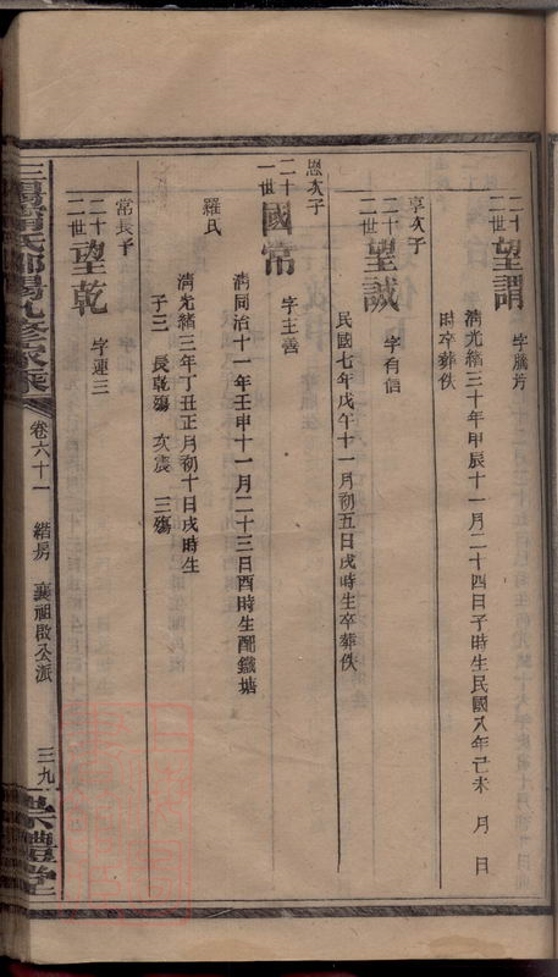 二十二世 望謂 字騰芳
清光緒三十年甲辰十一月二十四日子時生民國八年己未 月 日
時卒葬佚
享次子
二十二世 望誠 字有信
民國七年戊午十一月初五日戌時生卒葬佚
恩次子
二十一世 國常 字主善
清同治十一年壬申十一月二十三日酉時生配鐵塘
羅氏
清光緒三年丁丑正月初十日戌時生
子三 長乾殤 次震 三殤
常長子
二十二世 望乾 字連三
卷六十一 緒房 襄祖啟公派 三九